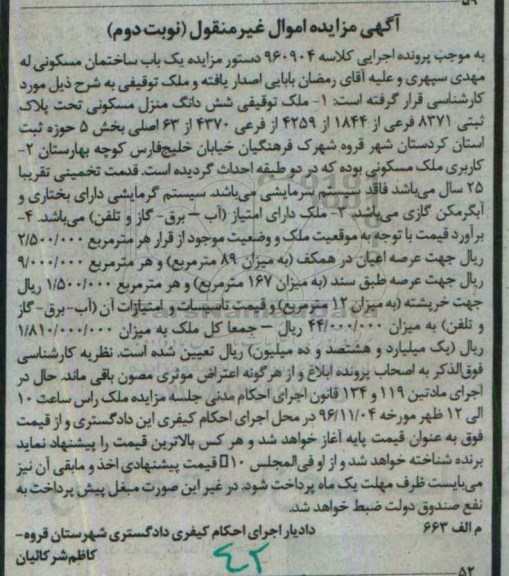 ۵۹
آگهی مزایده اموال غیرمنقول (نوبت دوم)
به موجب پرونده اجرایی کلاسه ۹۶۰۹۰۴ دستور مزایده یک باب ساختمان مسکونی له
مهدی سپهری و علیه آقای رمضان بابایی اصدار یافته و ملک توقیفی به شرح ذیل مورد
کارشناسی قرار گرفته است: ۱- ملک توقیفی شش دانگ منزل مسکونی تحت پلاک
ثبتی ۸۳۷۱ فرعی از ۱۸۴۴ از ۴۲۵۹ از فرعی ۴۳۷۰ از ۶۳ اصلی بخش ۵ حوزه ثبت
استان کردستان شهر قروه شهرک فرهنگیان خیابان خلیج‌فارس کوچه بهارستان ۲-
کاربری ملک مسکونی بوده که در دو طبقه احداث گردیده است. قدمت تخمینی تقریبا
۲۵ سال می‌باشد فاقد سیستم سرمایشی می‌باشد. سیستم گرمایشی دارای بخاری و
آبگرمکن گازی می‌باشد. ۳- ملک دارای امتیاز (آب – برق- گاز و تلفن) می‌باشد. ۴-
برآورد قیمت با توجه به موقعیت ملک و وضعیت موجود از قرار هر مترمربع ۲/۵۰۰/۰۰۰
ریال جهت عرصه اعیان در همکف (به میزان ۸۹ مترمربع) و هر مترمربع ۹/۰۰۰/۰۰۰
ریال جهت عرصه طبق سند (به میزان ۱۶۷ مترمربع) و هر مترمربع ۱/۵۰۰/۰۰۰ ریال
جهت خرپشته (به میزان ۱۲ مترمربع) و قیمت تاسیسات و امتیازات آن (آب- برق- گاز
و تلفن) به میزان ۴۴/۰۰۰/۰۰۰ ریال – جمعا کل ملک به میزان ۱/۸۱۰/۰۰۰/۰۰۰
ریال (یک میلیارد و هشتصد و ده میلیون) ریال تعیین شده است. نظریه کارشناسی
فوق‌الذکر به اصحاب پرونده ابلاغ و از هرگونه اعتراض موثری مصون باقی ماند. حال در
اجرای مادتین ۱۱۹ و ۱۳۴ قانون اجرای احکام مدنی جلسه مزایده ملک راس ساعت ۱۰
الی ۱۲ ظهر مورخه ۹۶/۱۱/۰۴ در محل اجرای احکام کیفری این دادگستری و از قیمت
فوق به عنوان قیمت پایه آغاز خواهد شد و هر کس بالاترین قیمت را پیشنهاد نماید
برنده شناخته خواهد شد و از او فی‌المجلس ۱۰ قیمت پیشنهادی اخذ و مابقی آن نیز
می‌بایست ظرف مهلت یک ماه پرداخت شود. در غیر این صورت مبلغ پیش پرداخت به
نفع صندوق دولت ضبط خواهد شد.
م الف ۶۶۳ دادیار اجرای احکام کیفری دادگستری شهرستان قروه-
کاظم شرکائیان
۴۲
۵۲